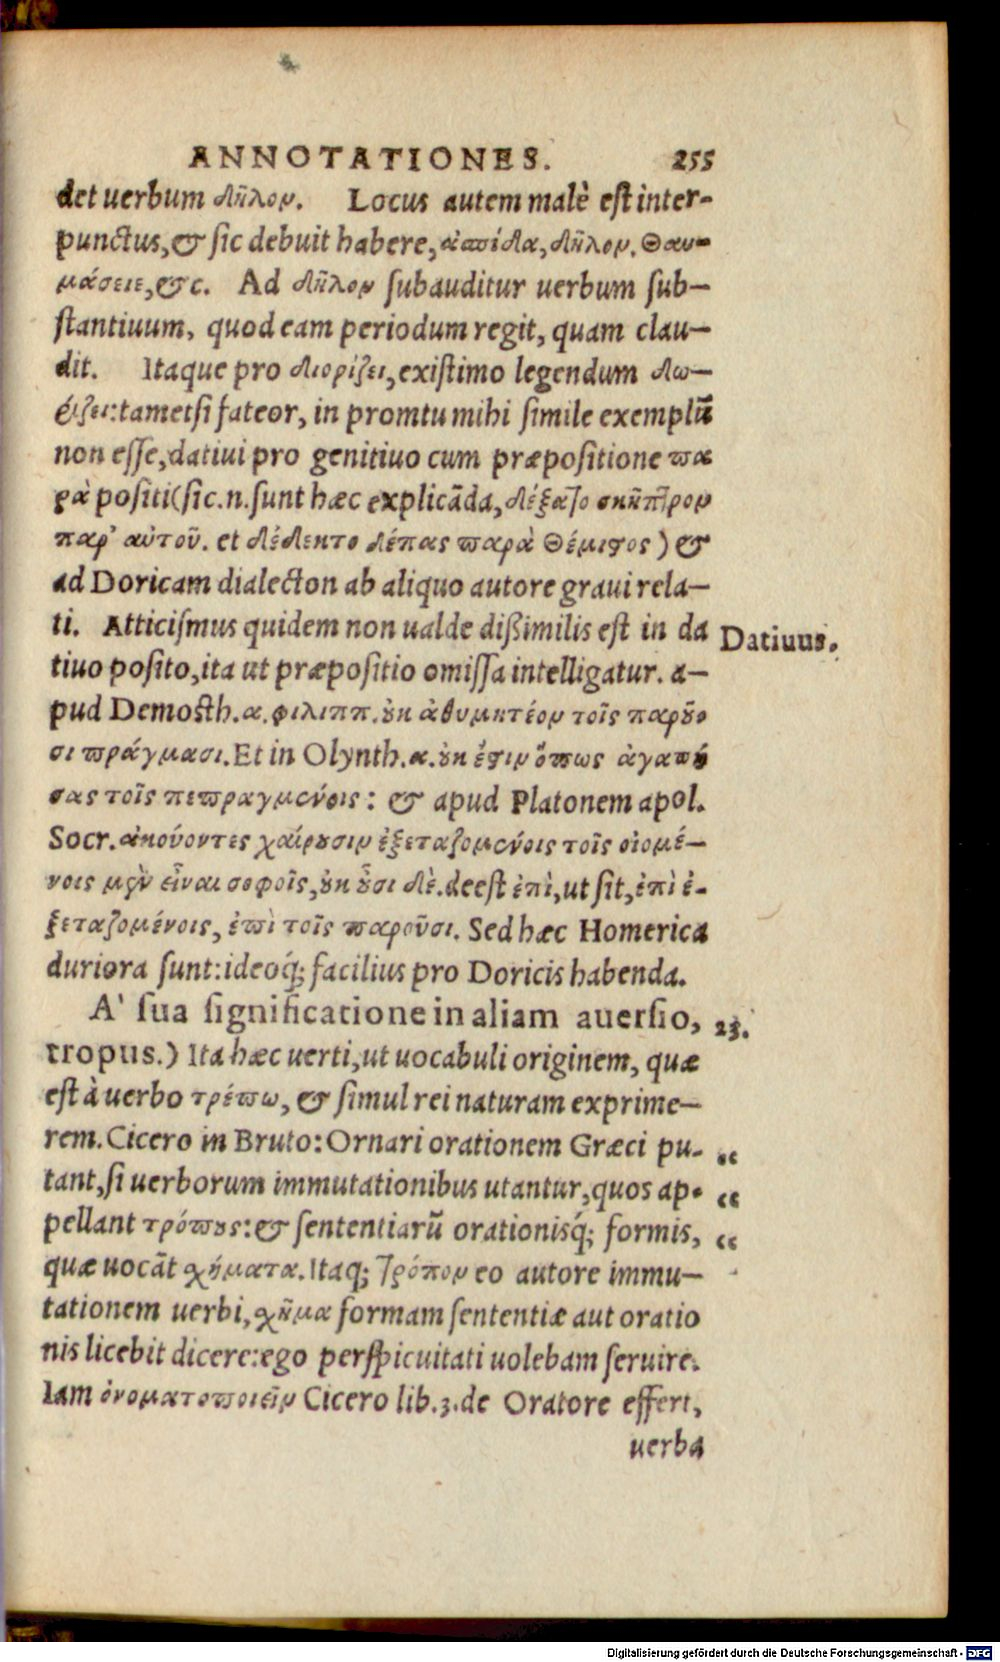 ANNOTATIONES. 255
det uerbum δῆλον. Locus autem malè est inter-
punctus,& sic debuit habere, ἀσπίδα, δῆλον. Θαυ-
μάσειε,&c. Ad δῆλον subauditur uerbum sub-
stantiuum, quod eam periodum regit, quam clau-
dit. Itaque pro διορίζει, existimo legendum δω-
ρίζει: tametsi fateor, in promtu mihi simile exemplũ
non esse, datiui pro genitiuo cum præpositione πα
ρὰ positi(sic.n.sunt hæc explicãda, δέξατο σκῆπτρον
παρ' αὐτοῦ. et δέδεκτο δέπας παρὰ Θέμιστος) &
ad Doricam dialecton ab aliquo autore graui rela-
ti. Atticismus quidem non ualde dißimilis est in da Datiuus.
tiuo posito, ita ut præpositio omissa intelligatur. a-
pud Demosth.α.φιλιππ.ȣκ ἀθυμητέον τοῖς παρȣ͂-
σι πράγμασι. Et in Olynth.α.ȣκ ἔστιν ὅπως ἀγαπή
σας τοῖς πεπραγμένοις: & apud Platonem apol.
Socr. ἀκούοντες χαίρȣσιν ἐξεταζομένοις τοῖς οἰομέ-
νοις μὲν εἶναι σοφοῖς, ȣκ ȣ͂σι δὲ. deest ἐπὶ, ut sit, ἐπὶ ἐ-
ξεταζομένοις, ἐπὶ τοῖς παροῦσι. Sed hæc Homerica
duriora sunt: ideoq́; facilius pro Doricis habenda.
A' sua significatione in aliam auersio, 23.
tropus.) Ita hæc uerti, ut uocabuli originem, quæ
est à uerbo τρέπω, & simul rei naturam exprime-
rem. Cicero in Bruto: Ornari orationem Græci pu- “
tant, si uerborum immutationibus utantur, quos ap- “
pellant τρόπȣς: & sententiarũ orationisq́; formis, “
quæ uocãt χήματα. Itaq; τρόπον eo autore immu-
tationem uerbi, χῆμα formam sententiæ aut oratio
nis licebit dicere: ego perspicuitati uolebam seruire.
Iam ὀνοματοποιεῖν Cicero lib.3.de Oratore effert,
uerba
Digitalisierung gefördert durch die Deutsche Forschungsgemeinschaft - DFG